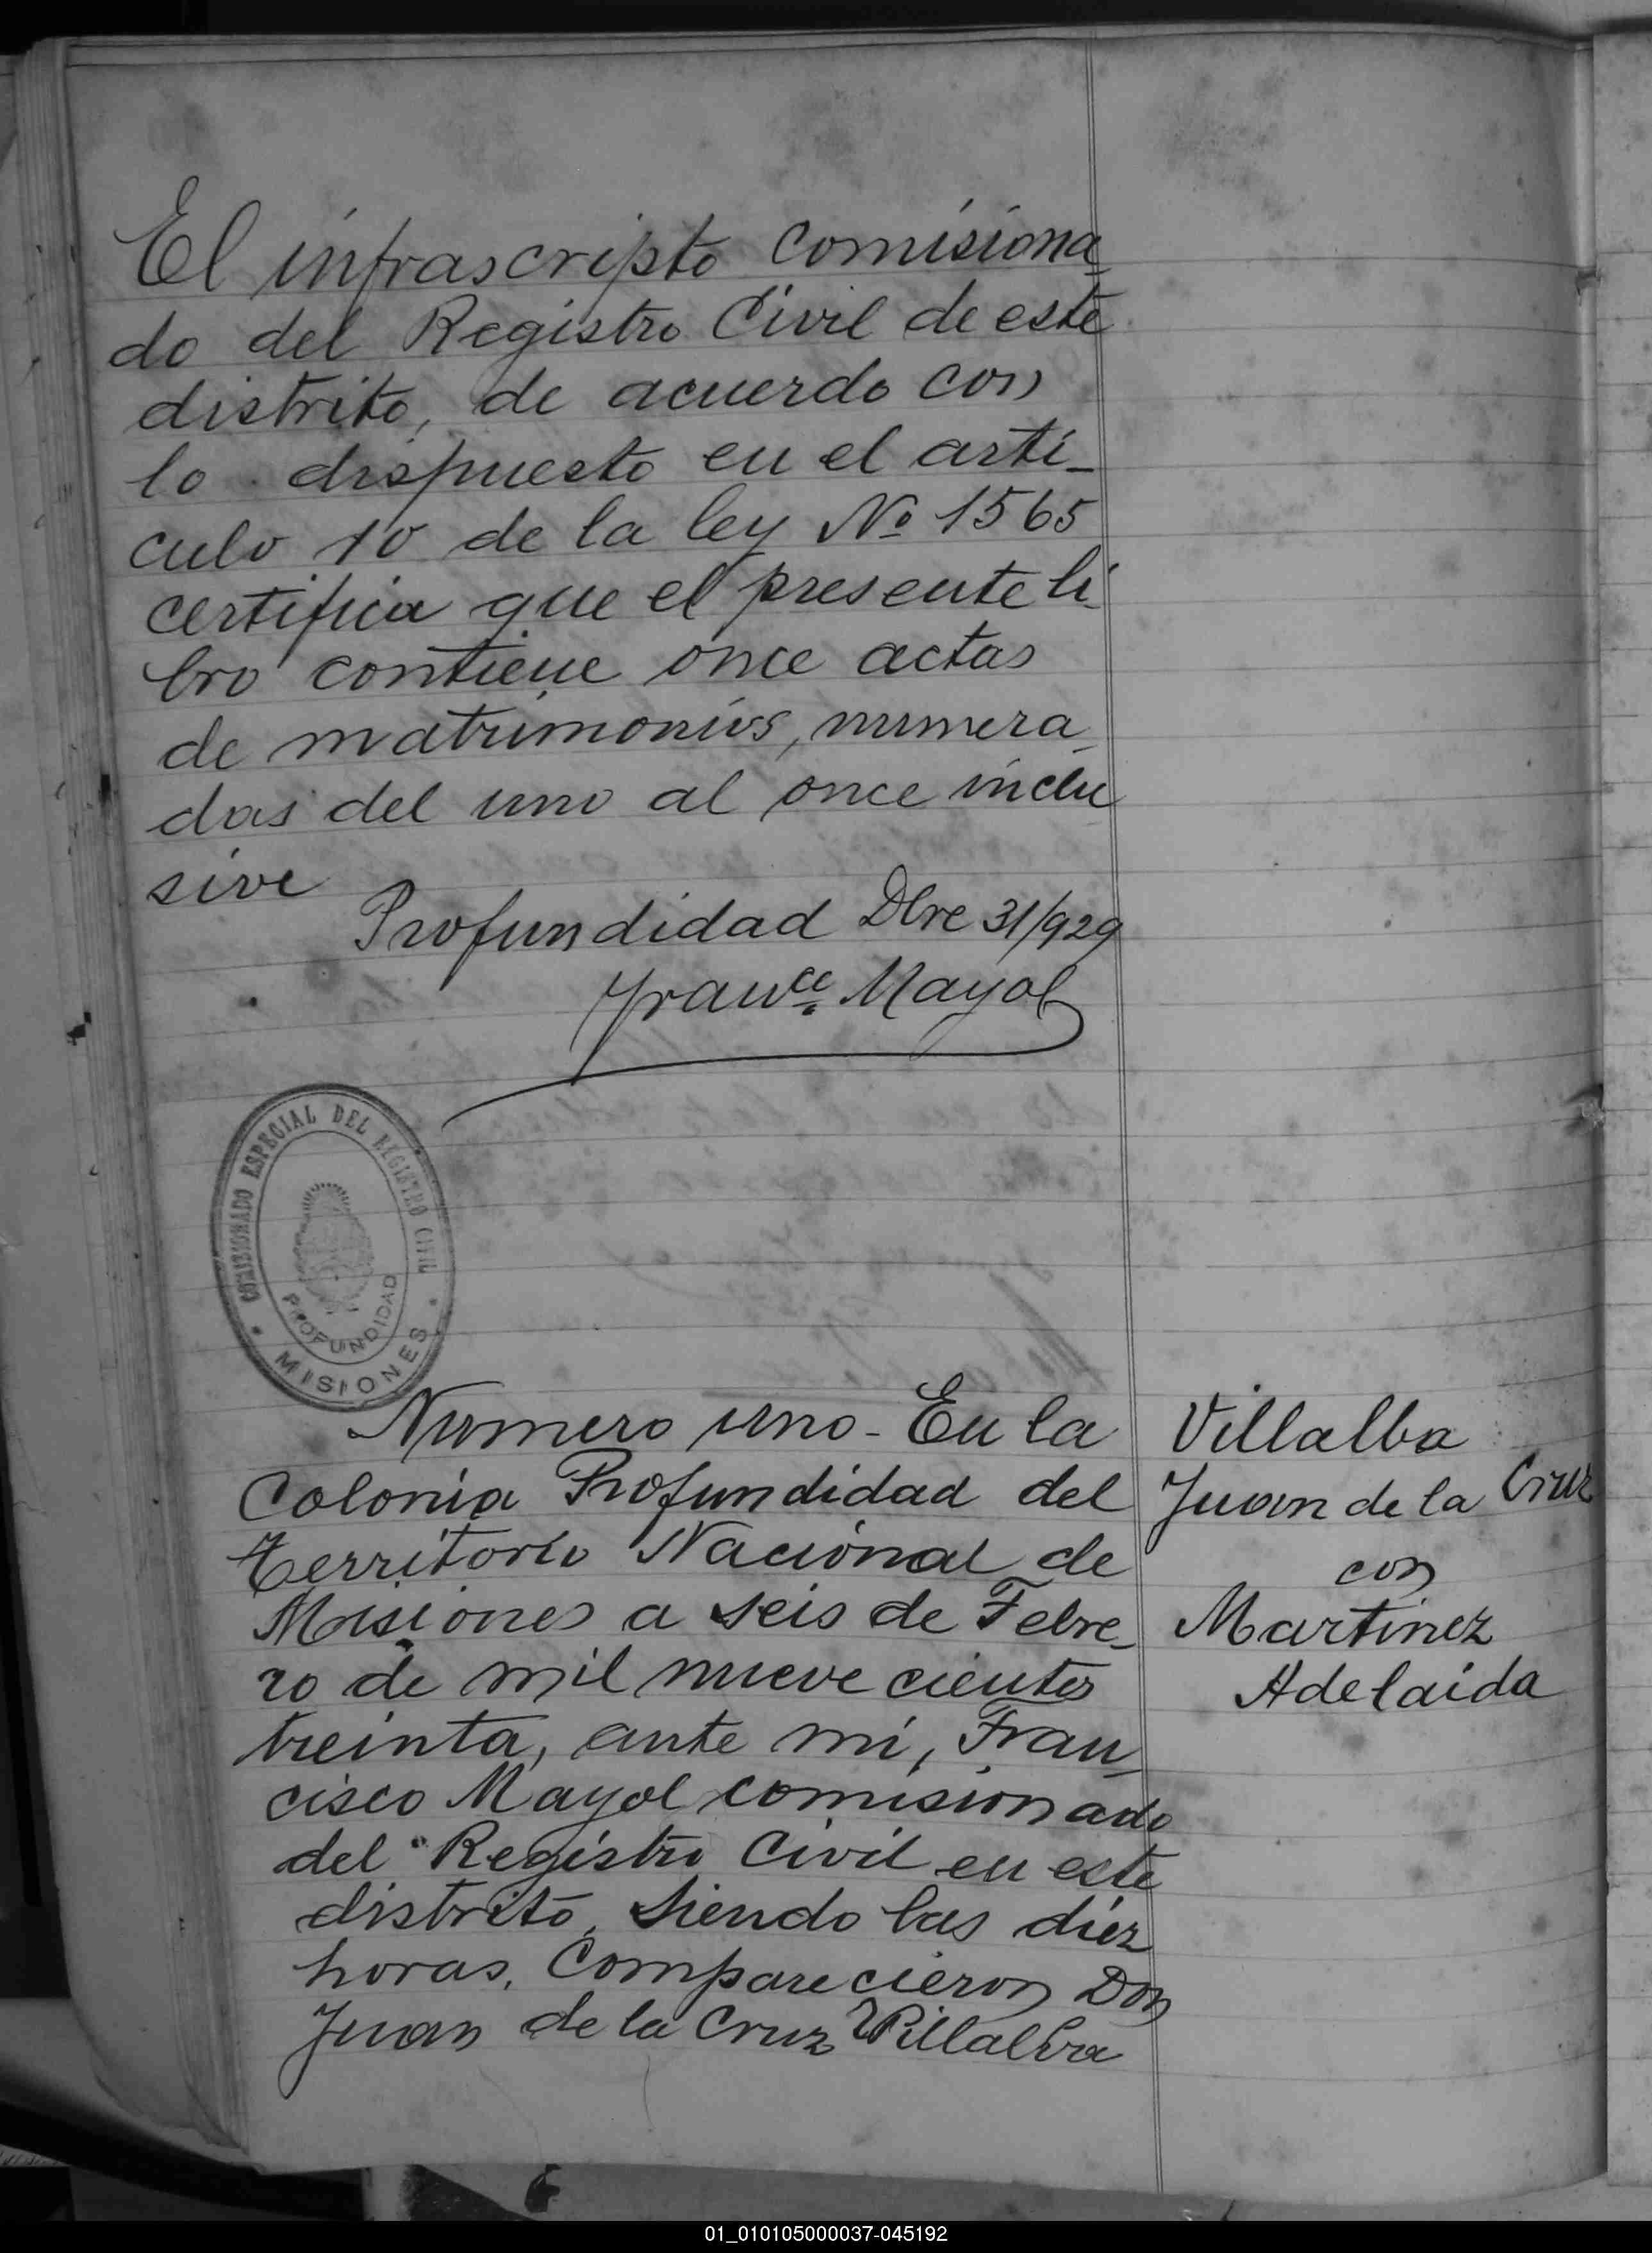 El infrascripto comisiona_
do del Registro Civil de este
distrito, de acuerdo con
lo dispuesto en el arti_
culo 10 de la ley Nº 1565
certifica que el presente li_
bro contiene once actas
de matrimonios, numera_
das del uno al once inclu
sive
Profundidad Dbre 31/929
Franco. Mayol
COMISIONADO ESPECIAL DEL REGISTRO CIVIL
PROFUNDIDAD
MISIONES
Numero uno - En la
Colonia Profundidad del
Territorio Nacional de
Misiones a seis de Febre_
ro de mil nueve cientos
treinta, ante mi, Fran_
cisco Mayol comisionado
del Registro Civil en este
distrito, siendo las diez
horas, Comparecieron Don
Juan de la Cruz Villalba
Villalba
Juan de la Cruz
con
Martinez
Adelaida
01_010105000037-045192